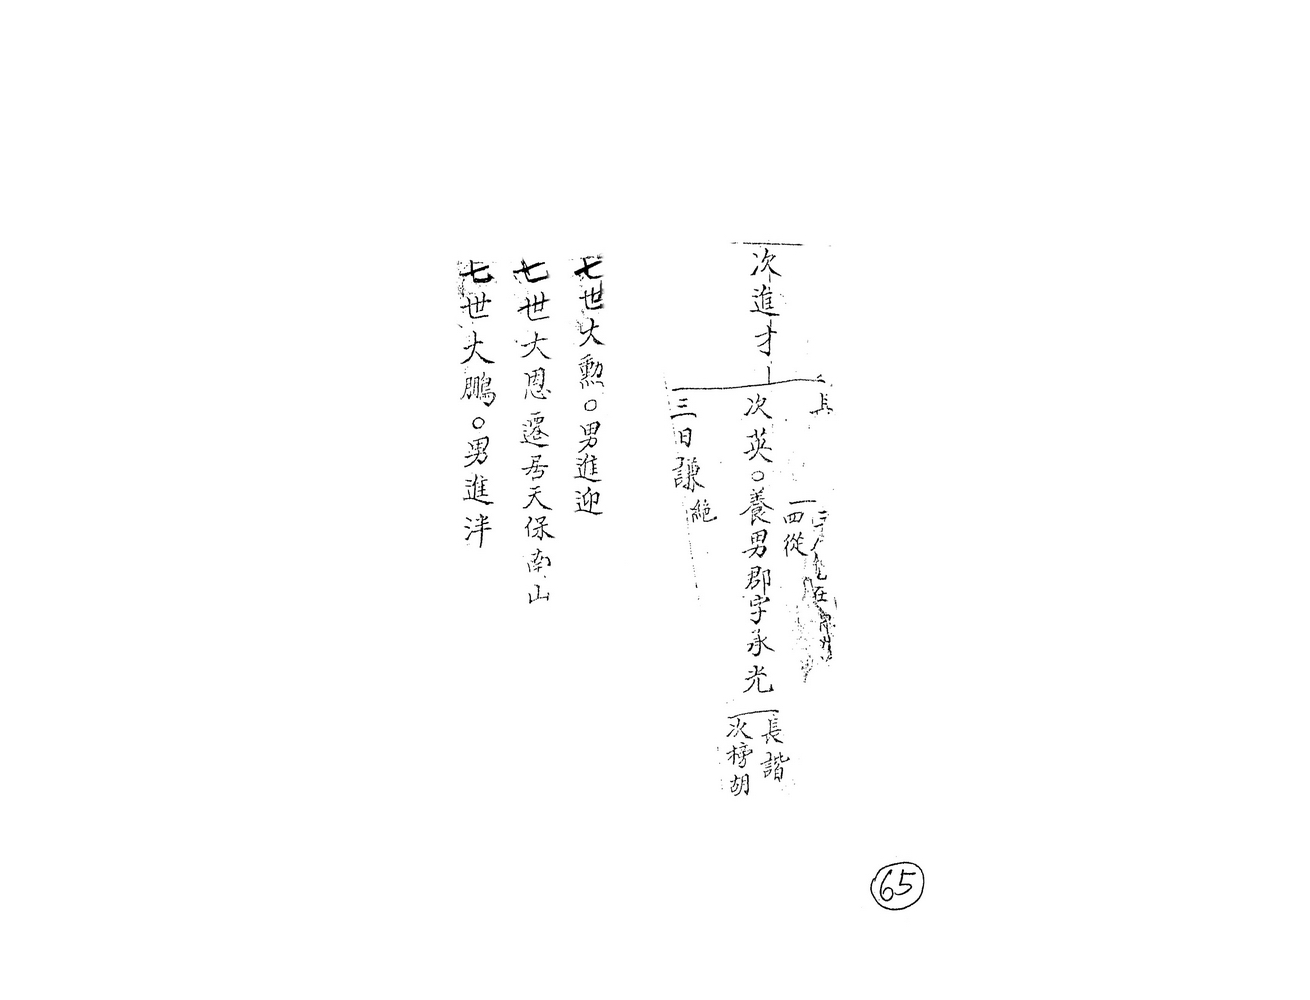 次進才
次英○養男郡字承光
長諧
次榜胡
四從
三曰謙絕
七世大勲○男進迎
七世大恩遷居天保南山
七世大鵬○男進泮
65